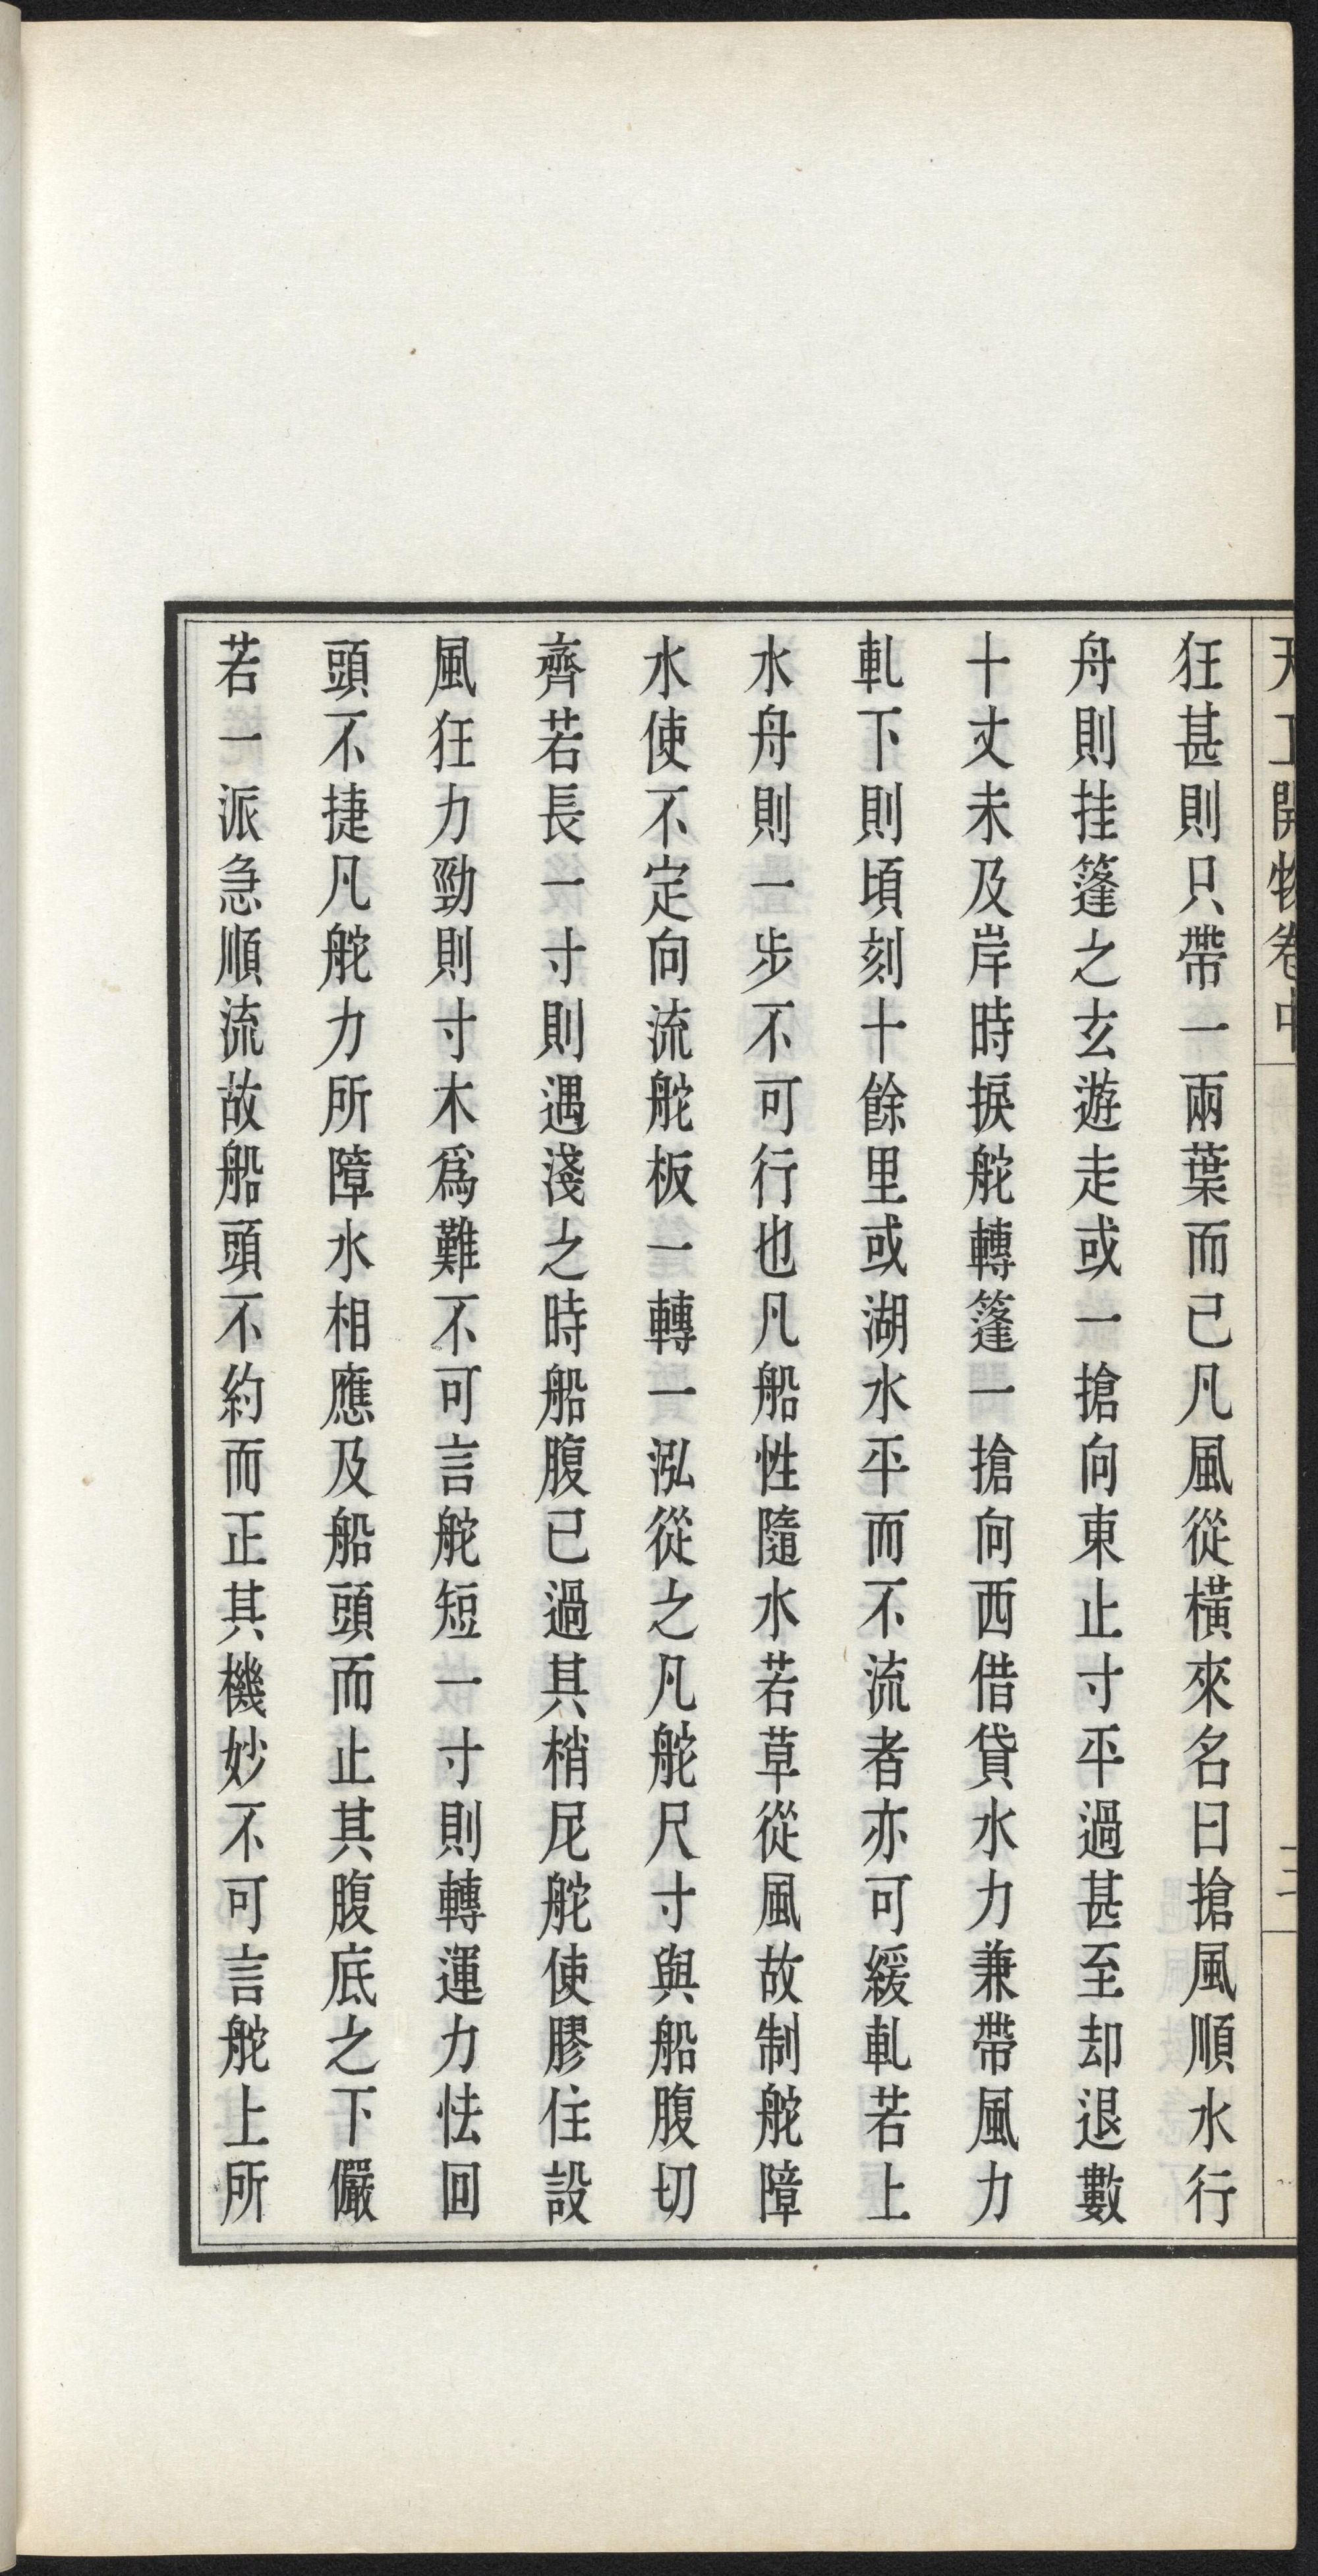 天工開物卷中
三
狂甚則只帶一兩葉而已凡風從橫來名曰搶風順水行
舟則挂篷之玄遊走或一搶向東止寸平過甚至却退數
十丈未及岸時捩舵轉篷一搶向西借貸水力兼帶風力
軋下則頃刻十餘里或湖水平而不流者亦可緩軋若上
水舟則一步不可行也凡船性隨水若草從風故制舵障
水使不定向流舵板一轉一泓從之凡舵尺寸與船腹切
齊若長一寸則遇淺之時船腹已過其梢尾舵使膠住設
風狂力勁則寸木爲難不可言舵短一寸則轉運力怯回
頭不捷凡舵力所障水相應及船頭而止其腹底之下儼
若一派急順流故船頭不約而正其機妙不可言舵上所